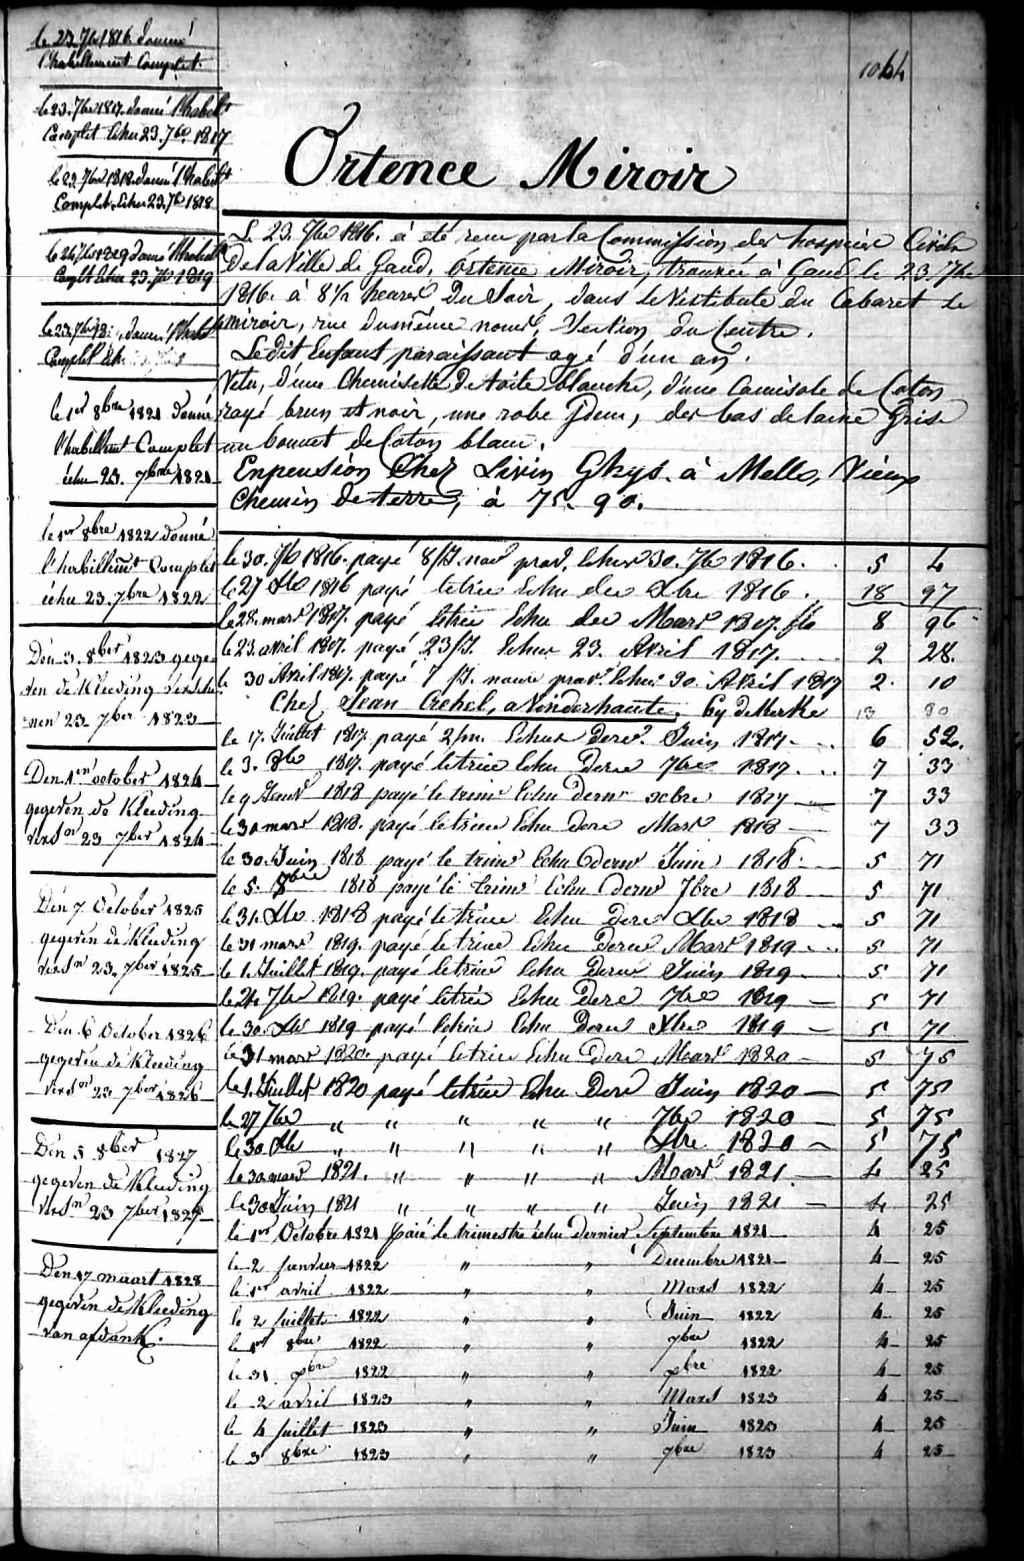 1064
le 23 7bre 1816 donné
l'habillement Complet.
le 23. 7bre 1817. donné l'habilt
Complet Echu 23. 7bre 1817
le 23 7bre 1818. donné l'habilt
Complet Echu 23. 7b 1818
le 24 7bre 1819 donné l'habilt
Complt Echu 23. 7br 1819
donné l'habilt
Complet Echu
le 1er 8bre 1821 donné
l'habillemt Complet
échu 23. 7bre 1821
le 1er 8bre 1822 donné
l'habillemt Complet
échu 23. 7bre 1822
Den 3. 8ber 1823 gege-
ven de Kleeding verschee
nen 23 7ber 1823
Den 1en october 1824
gegeven de Kleeding
versn 23 7ber 1824
Den 7 October 1825
gegeven de Kleeding
versn 23. 7ber 1825
Den 6 October 1826
gegeven de Kleeding
versn 23 7ber 1826
Den 5 8ber 1827
gegeven de Kleeding
versn 23 7ber 1827
Den 17 maart 1828
gegeven de Kleeding
van afdank.
Ortence Miroir
Le 23. 7bre 1816. à été reçu par la Commission des hospices Civils
De la Ville de Gand, Ortence Miroir, trouvée à Gand le 23. 7bre
1816. à 8 1/2 heures Du Soir, dans le Vestibule du Cabaret le
miroir, rue du même nom, Section du Centre.
Le dit Enfant paraissant agé d'un an.
Vetu, d'une Chemisette de toile blanche, d'une Camisole de Coton
rayé brun et noir, une robe Idem, des bas de laine Grise
un bonnet de Coton blanc.
En pension Chez Livin Ghys. à Melle, Vieux
Chemin de terre, à 75. 90.
le 30. 7b 1816. payé 8/J. nour prov. Echus 30. 7b 1816. 5 4
le 27 Xbre 1816 payé letrim Echu der Xbre 1816. 18 97
le 28. mars 1817. payé letrim Echu der Mars 1817. fls 8 96
le 23. avril 1817. payé 23/J. Echus 23. Avril 1817. 2 28.
le 30 Avril 1817. payé 7 J. nour prov. Echus 30. Avril 1817 2. 10
Chez Jean Crehel, a Vinderhaute, by de Kerke 13 80
le 17. Juillet 1817. payé 2/m. Echus Dere. Juin 1817. 6 52.
le 3. 8bre 1817. payé letrim Echu Dere 7bre 1817. 7 33
le 9 Janr 1818 payé le trim Echu Dernr xcbre 1817 7 33
le 30 mars 1818. payé letrim Echu Dere Mars 1818 7 33
le 30. Juin 1818 payé le trim Echu Dernr Juin 1818. 5 71
le 5. 8bre 1818 payé le trim Echu Dernr 7bre 1818 5 71
le 31. Xbre 1818 payé le trim Echu Dere Xbre 1818 5 71
le 31 mars 1819. payé le trim Echu Derne Mars 1819 5 71
le 1. Juillet 1819. payé letrim Echu Derne Juin 1819 5 71
le 24 7bre 1819. payé letrim Echu Dere 7bre 1819 5 71
le 30. Xbre 1819 payé letrim Echu Derne Xbre 1819 5 71
le 31 mars 1820. payé letrim Echu Dere Mars 1820 5 75
le 1. Juillet 1820 payé letrim Echu Dere Juin 1820 5 75
le 27 7bre " " " " " 7bre 1820 5 75
le 30 Xbre " " " " " Xbre 1820 5 75
le 30 mars 1821. " " " " Mars 1821 4 25
le 30 Juin 1821 " " " " Juin 1821 4 25
le 1er Octobre 1821 Payé le trimestre échu dernier Septembre 1821 4 25
le 2 janvier 1822 " " Decembre 1821 4 25
le 1er avril 1822 " " Mars 1822 4 25
le 2 juillet 1822 " " Juin 1822 4 25
le 1er 8bre 1822 " " 7bre 1822 4 25
le 31 xbre 1822 " " xbre 1822 4 25
le 2 avril 1823 " " Mars 1823 4 25
le 4 juillet 1823 " " Juin 1823 4 25
le 3 8bre 1823 " " 7bre 1823 4 25